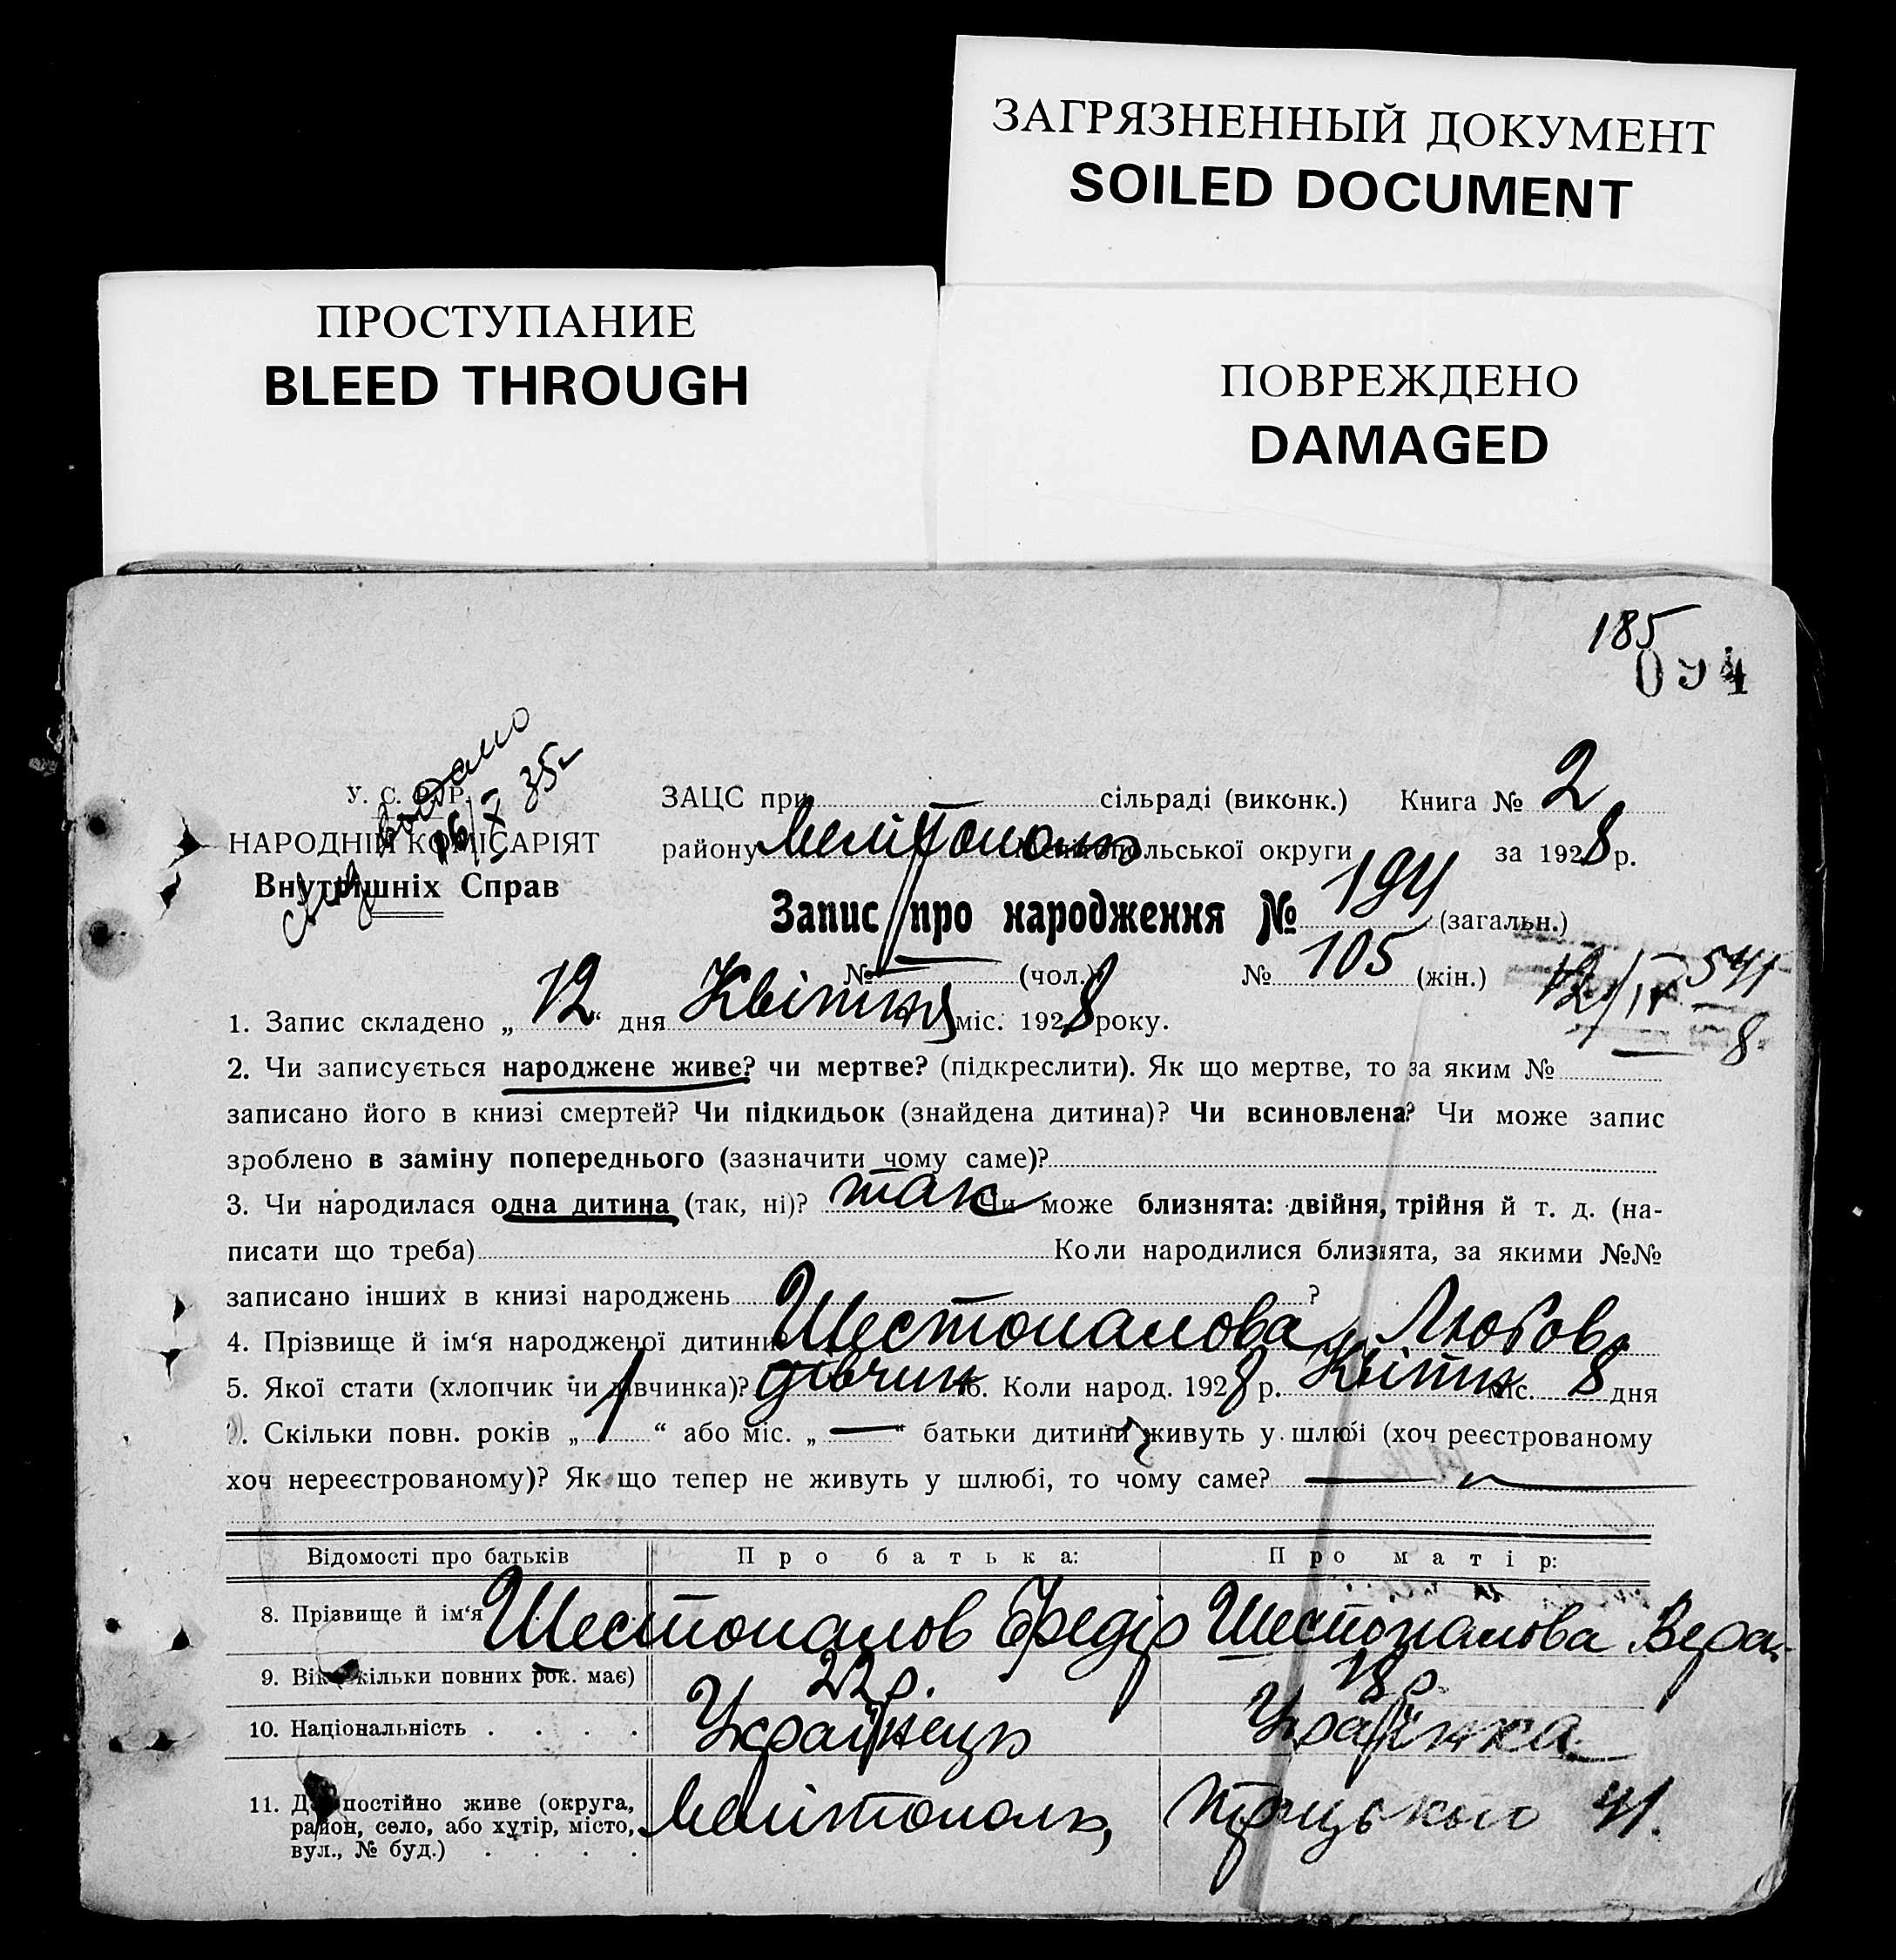 ЗАГРЯЗНЕННЫЙ ДОКУМЕНТ
SOILED DOCUMENT
ПРОСТУПАНИЕ
BLEED THROUGH
ПОВРЕЖДЕНО
DAMAGED
185
094
У. С. Р. Р.
НАРОДНІЙ КОМІСАРІЯТ
Внутрішніх Справ
видано
16/X 35
ЗАЦС при сільраді (виконк.) Книга № 2
району Мелітополь Мелітопільської округи за 1928 р.
Запис про народження № 194 (загальн.)
№ — (чол.) № 105 (жін.)
12/IV 541
8
1. Запис складено „ 12 “ дня Квітня міс. 1928 року.
2. Чи записується народжене живе? чи мертве? (підкреслити). Як що мертве, то за яким №
записано його в книзі смертей? Чи підкидьок (знайдена дитина)? Чи всиновлена? Чи може запис
зроблено в заміну попереднього (зазначити чому саме)?
3. Чи народилася одна дитина (так, ні)? так Чи може близнята: двійня, трійня й т. д. (на-
писати що треба) Коли народилися близнята, за якими №№
записано інших в книзі народжень — ?
4. Прізвище й ім‘я народженої дитини Шестопалова Любов
5. Якої стати (хлопчик чи дівчинка)? дівчин 6. Коли народ. 1928 р. Квітн міс. 8 дня
7. Скільки повн. років „ 1 “ або міс. „ — “ батьки дитини живуть у шлюбі (хоч реєстрованому
хоч нереєстрованому)? Як що тепер не живуть у шлюбі, то чому саме? —
Відомості про батьків Про батька: Про матір:
8. Прізвище й ім‘я Шестопалов Федір Шестопалова Вера
9. Вік (скільки повних рок. має) 22 р. 18 р.
10. Національність . . . . Українець Українка
11. Де постійно живе (округа,
район, село, або хутір, місто,
вул., № буд.) . . . .
Мелітополь, Троцького 41.